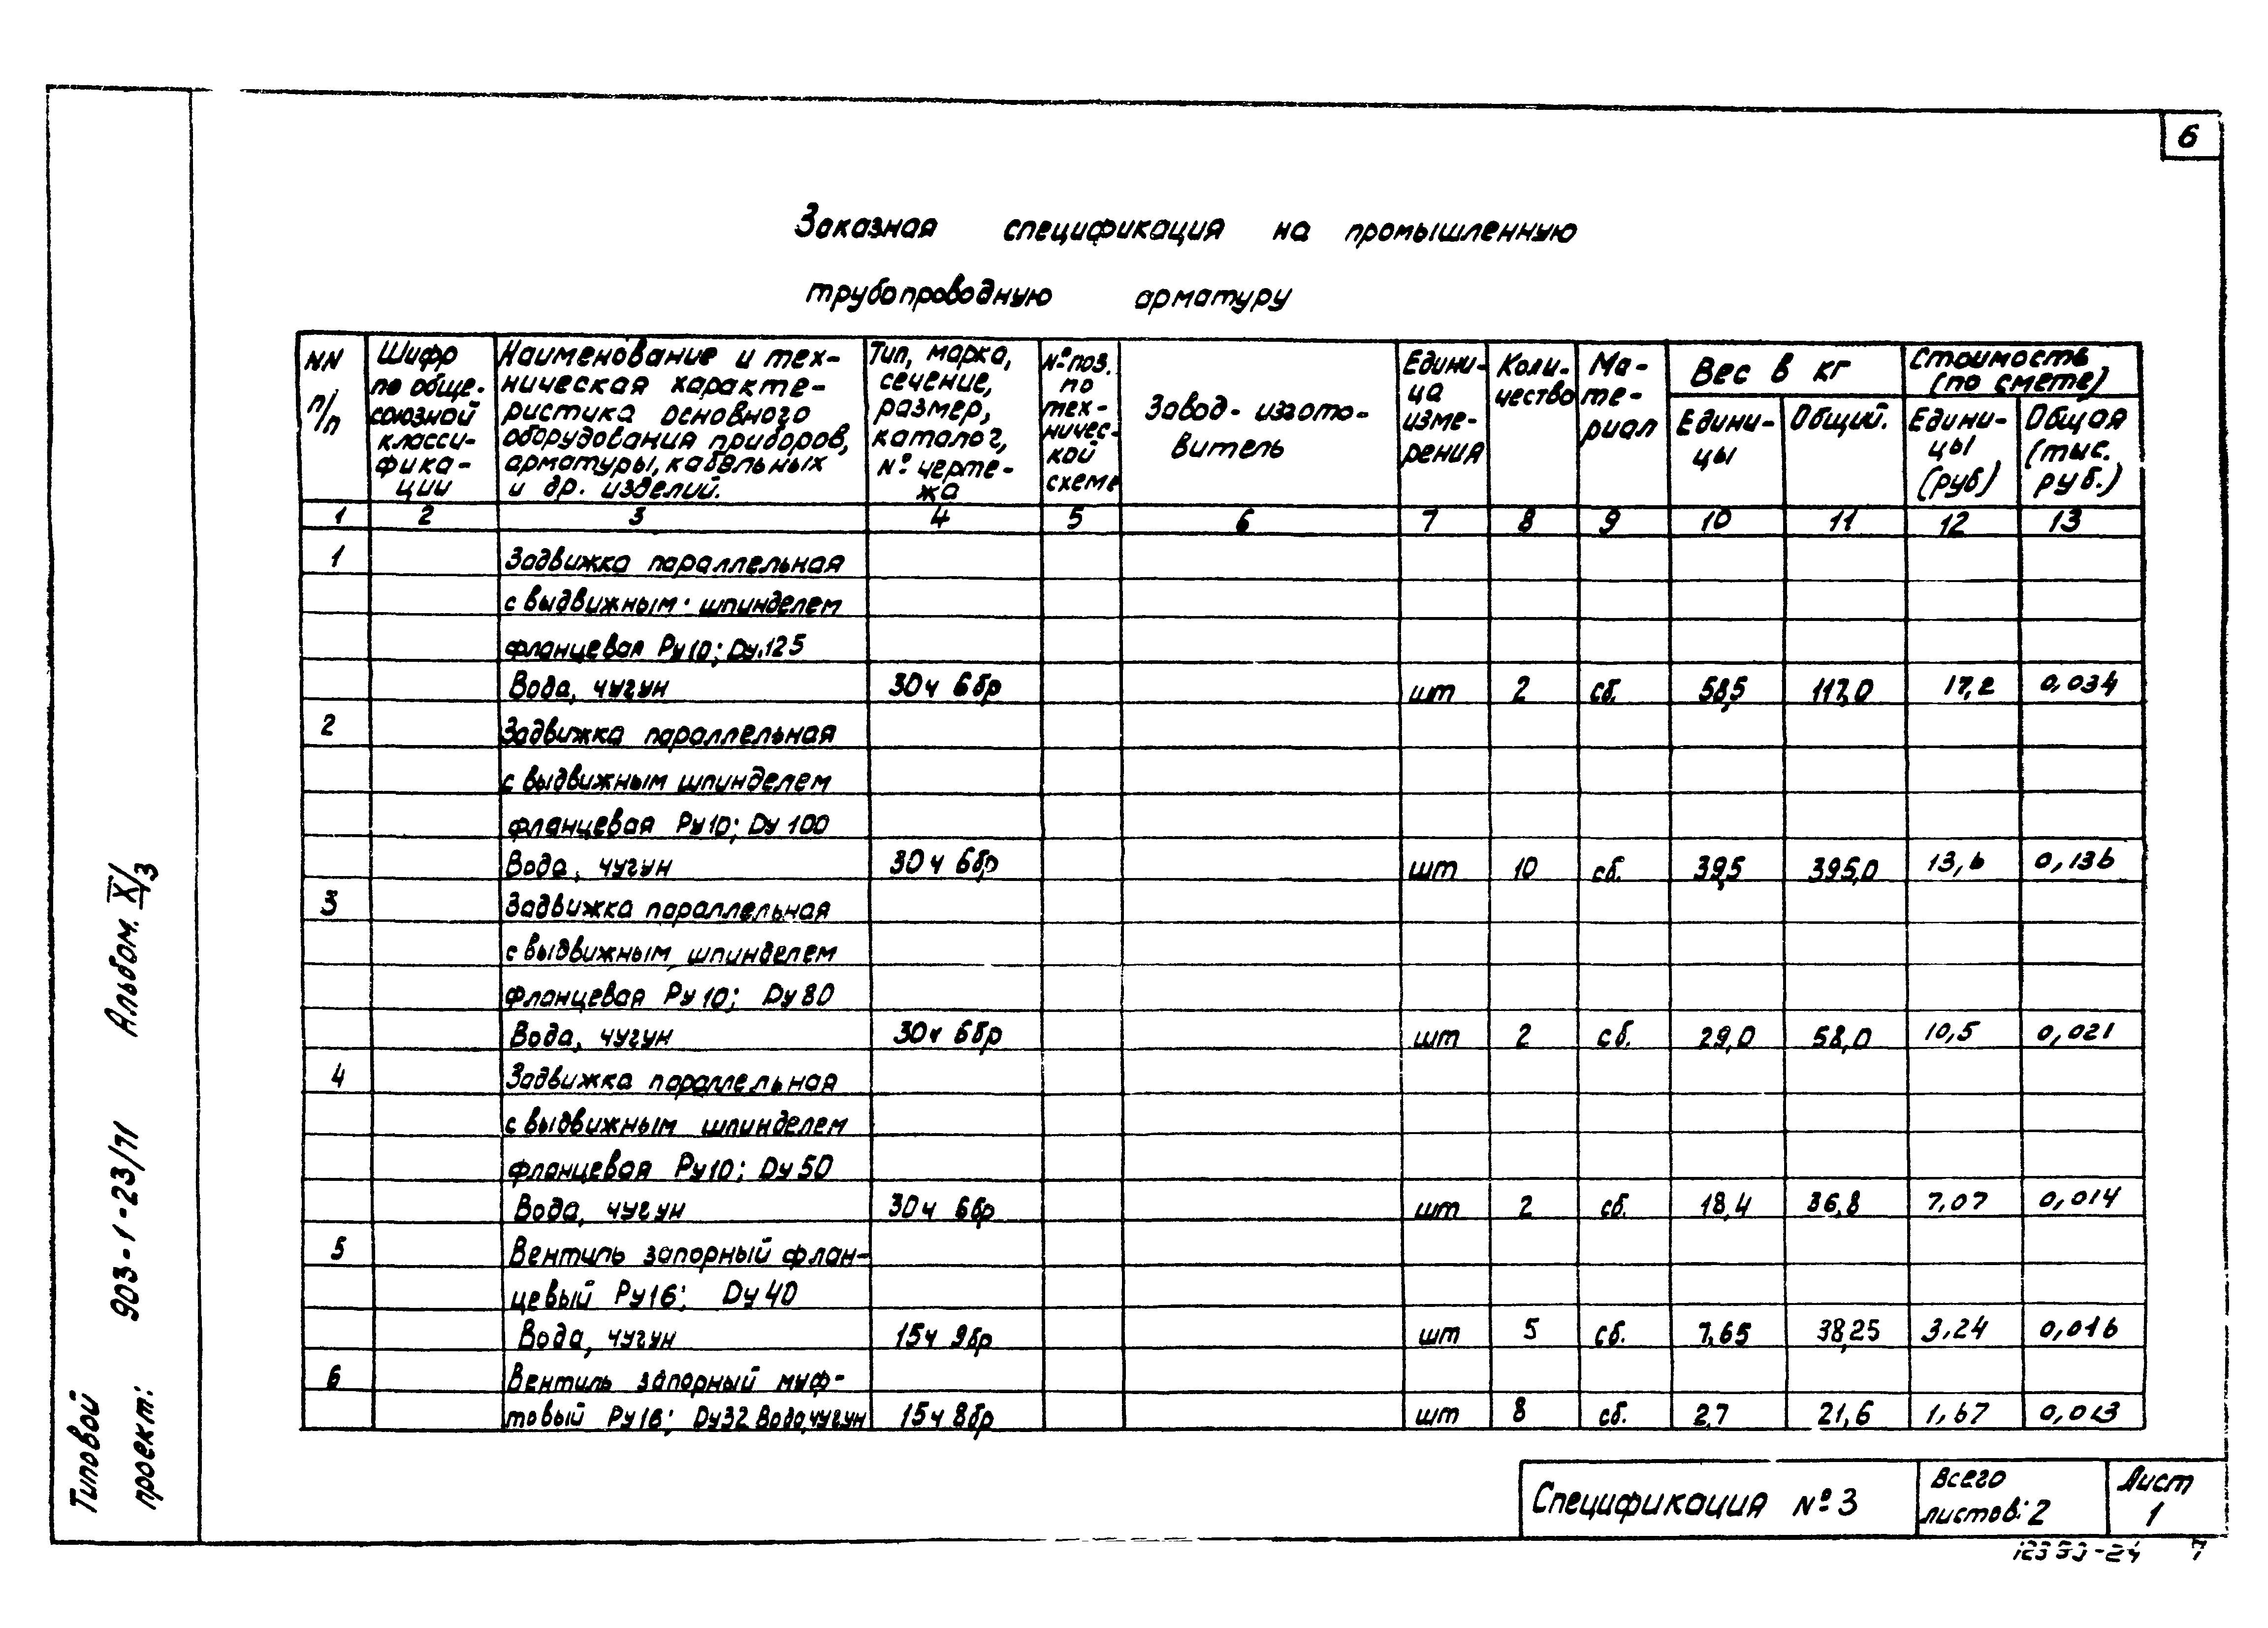 6
Заказная спецификация на промышленную
трубопроводную арматуру
NN п/п
Шифр по обще-союзной класси-фика-ции
Наименование и тех-
ническая характе-
ристика основного
оборудования приборов,
арматуры, кабельных
и др. изделий.
Тип, марка,
сечение,
размер,
каталог,
№ черте-
жа
№ поз.
по
тех-
ничес-
кой
схеме
Завод-изгото-
витель
Едини-
ца
изме-
рения
Коли-
чество
Ма-
те-
риал
Вес в кг
Едини-
цы
Общий.
Стоимость
(по смете)
Едини-
цы
(руб)
Общая
(тыс.
руб.)
1 2 3 4 5 6 7 8 9 10 11 12 13
1 Задвижка параллельная
с выдвижным шпинделем
фланцевая Ру10; Dy.125
Вода, чугун 30ч 6бр шт 2 сб. 58,5 117,0 17,2 0,034
2 Задвижка параллельная
с выдвижным шпинделем
фланцевая Ру10; Dy 100
Вода, чугун 30ч 6бр шт 10 сб. 39,5 395,0 13,6 0,136
3 Задвижка параллельная
с выдвижным шпинделем
фланцевая Ру10; Dy 80
Вода, чугун 30ч 6бр шт 2 сб. 29,0 58,0 10,5 0,021
4 Задвижка параллельная
с выдвижным шпинделем
фланцевая Ру10; Dy 50
Вода, чугун 30ч 6бр шт 2 сб. 18,4 36,8 7,07 0,014
5 Вентиль запорный флан-
цевый Ру16; Dy 40
Вода, чугун 15ч 9бр шт 5 сб. 7,65 38,25 3,24 0,016
6 Вентиль запорный муф-
товый Ру16; Dy32 Вода, чугун 15ч 8бр шт 8 сб. 2,7 21,6 1,67 0,013
Типовой
проект: 903-1-23/71 Альбом. XI/3
Спецификация №3
Всего
листов: 2
Лист
1
7